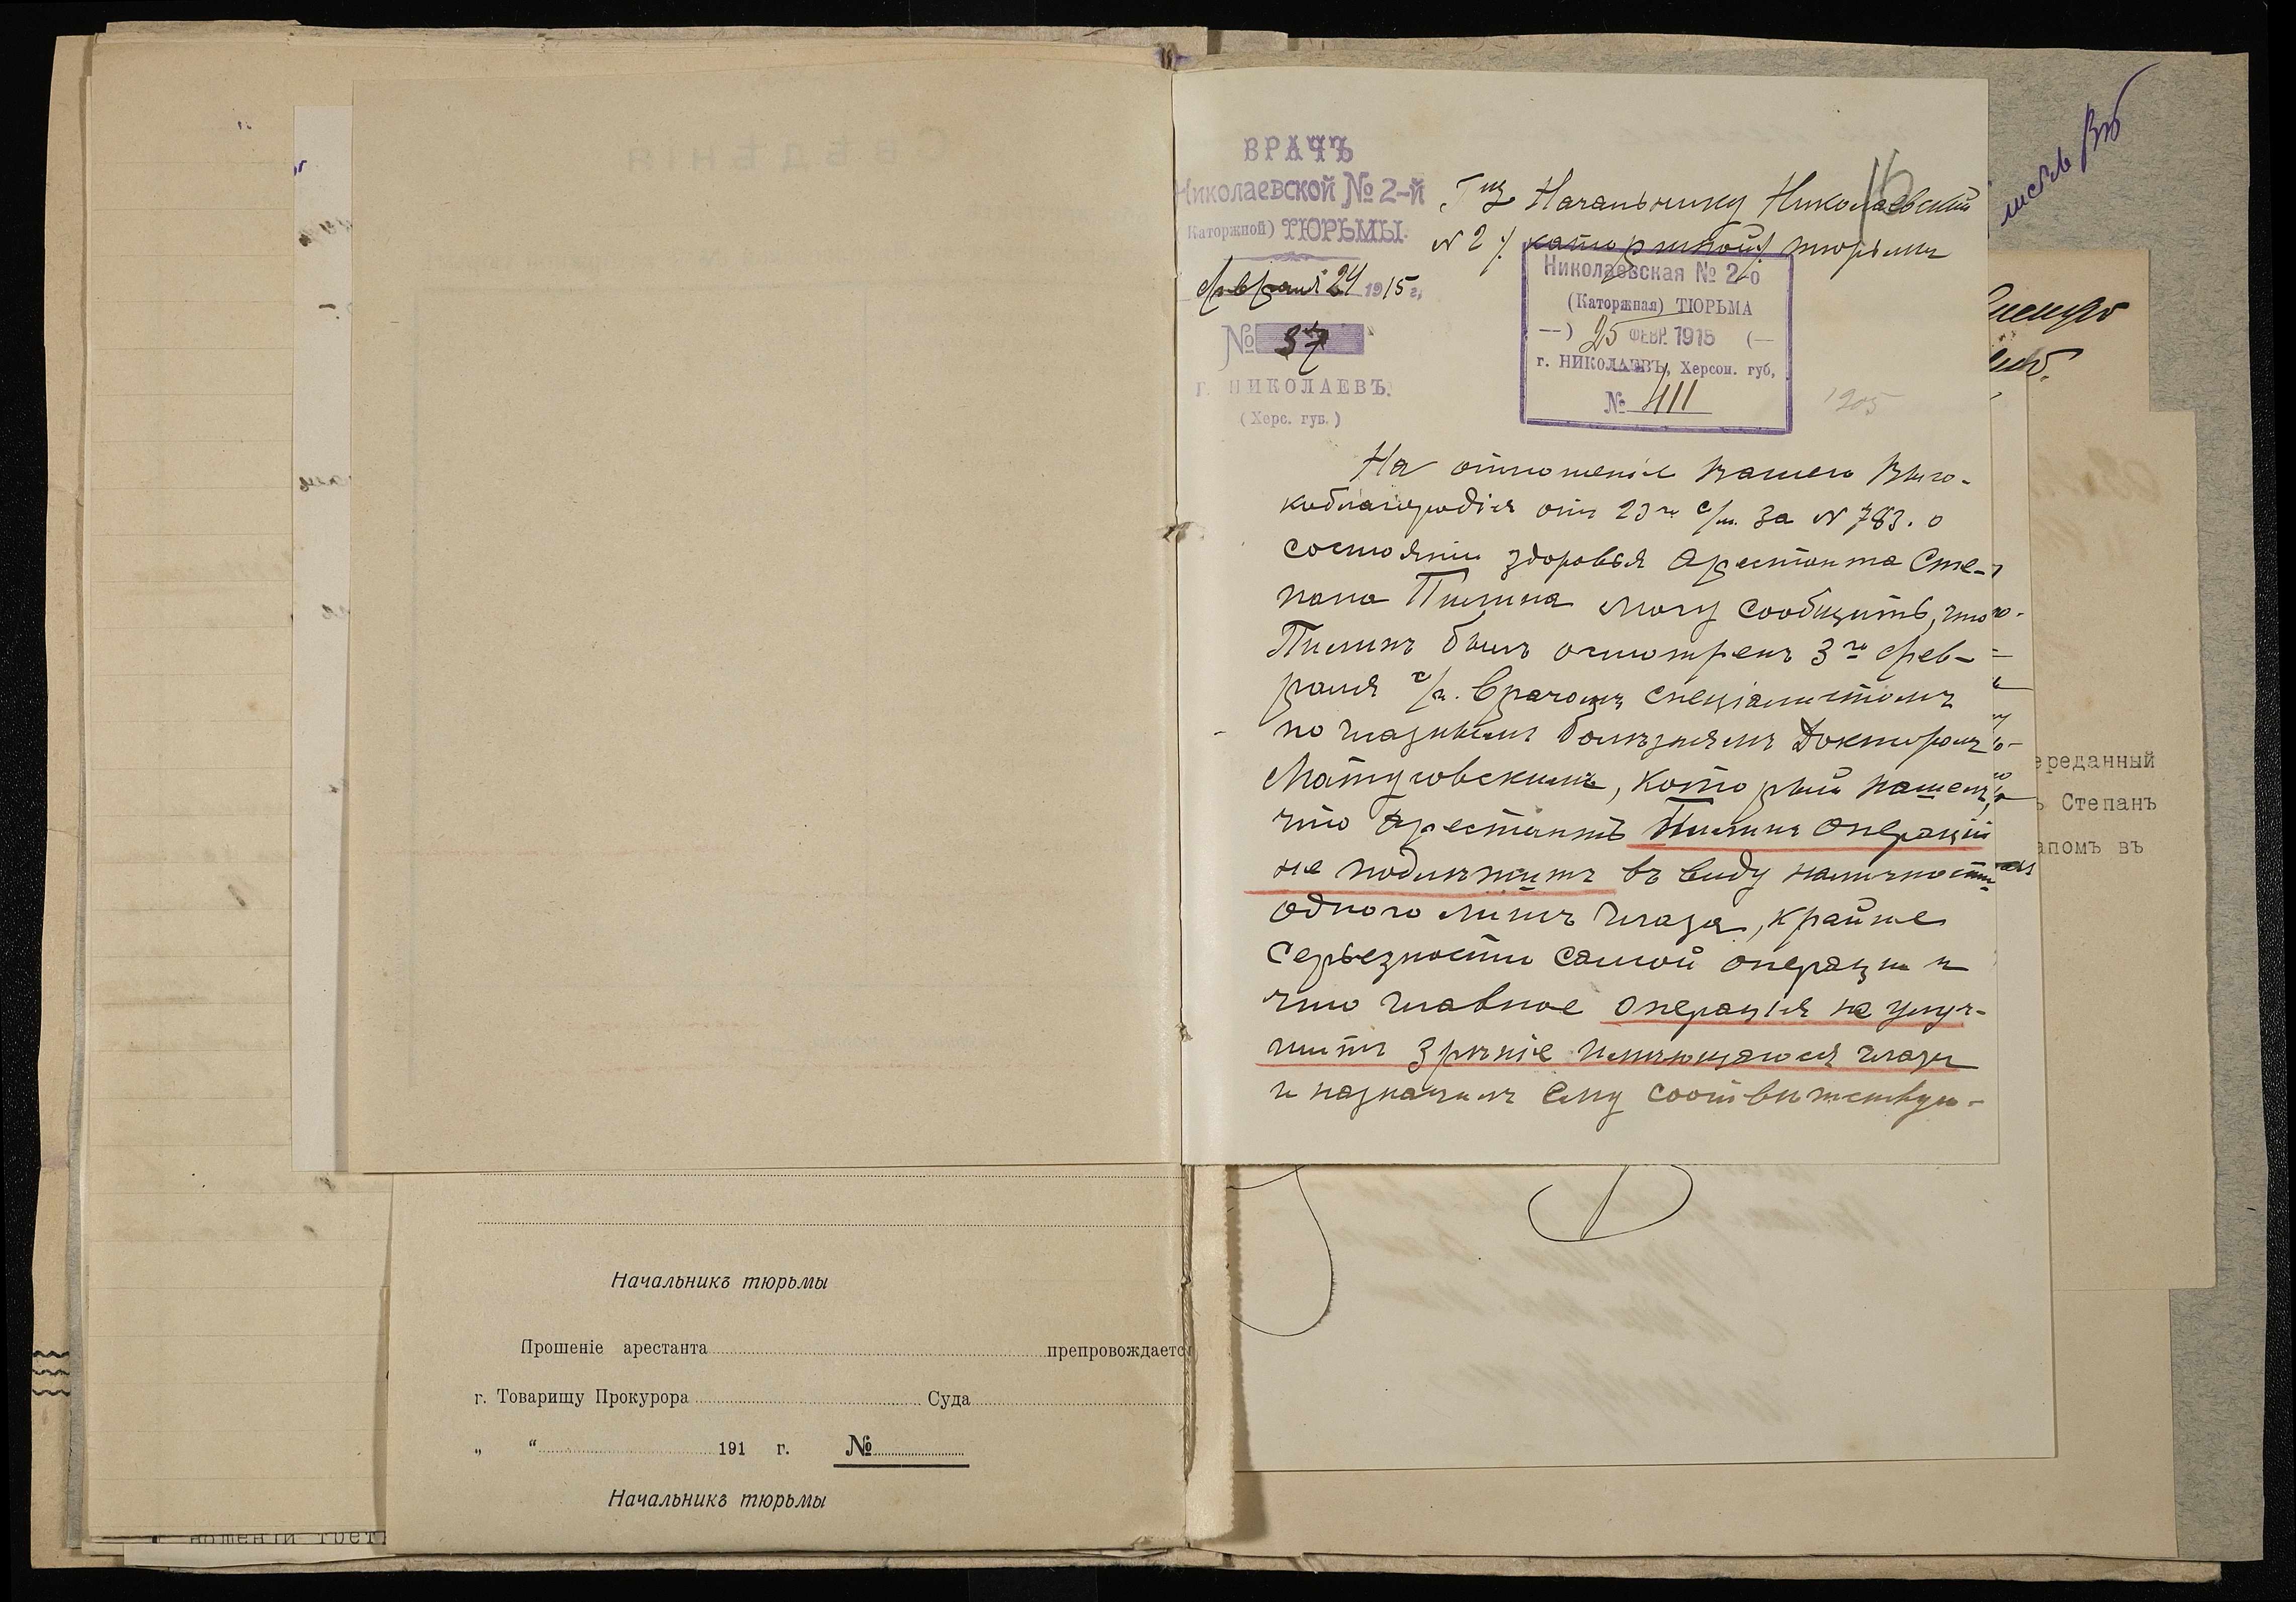 ВРАЧЪ
Николаевской № 2-й
(Каторжной) ТЮРЬМЫ.
февраля 24 1915 г.
№ 37
г. НИКОЛАЕВЪ.
(Херс. губ.)
16
Гну Начальнику Николаевской
N 2 /. каторжной /. тюрьмы
Николаевская № 2-о
(Каторжная) ТЮРЬМА
—) 25 ФЕВР. 1915 (—
г. НИКОЛАЕВЪ, Херсон. губ,
№ 411
1905
На отношенiе Вашего Высо-
коблагородiя отъ 23го с/м. за N 783. о
состоянiи здоровья арестанта Сте-
пана Пилина могу сообщить, что
Пилинъ былъ осмотренъ 3го фев-
раля с/г. врачомъ спецiалистомъ
по глазнымъ болѣзнямъ Докторомъ
Матусовскимъ, который нашелъ,
что арестантъ Пилинъ операцiи
не подлежитъ въ виду наличности
одного лишь глаза, крайне
серьезности самой операцiи и
что главное операцiя не улуч-
шитъ зрѣнiе имѣющагося глаза
и назначилъ ему соотвѣтствую-
листъ
ереданный
ъ Степанъ
апомъ въ
Начальникъ тюрьмы
Прошенiе арестанта препровождаетс
г. Товарищу Прокурора Суда
„ “ 191 г. №
Начальникъ тюрьмы